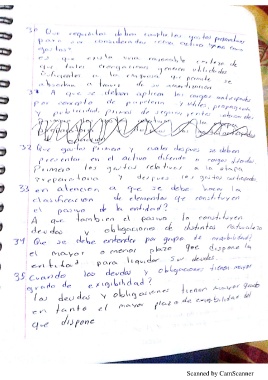 30 Que requisitos deben cumplir los gastos preoperativos
para ser considerados como activo
gastos?
es que exista una razonable certeza de
que tales erogaciones generen utilidades
suficientes a la empresa que permita
absorberlos a través de su amortización
31 A que se deben aplicar los cargos anticipados
por concepto de papelería y útiles, propaganda
y publicidad, primas de seguros, rentas
32 Que gastos primero y cuales después se deben
presentar en el activo diferido o cargos diferidos
Primero los gastos relativos a la etapa
preoperatoria y después los gastos anticipados
33 en atencion a que se debe hacer la
clasificación de elementos que constituyen
el pasivo de la entidad?
A que también el pasivo lo constituyen
deudas y obligaciones de distinta naturaleza
34 Que se debe entender por grado de exigibilidad?
el mayor o menor plazo que dispone la
entidad para liquidar sus deudas.
35 Cuando las deudas y obligaciones tienen mayor
grado de exigibilidad?
Las deudas y obligaciones tienen mayor grado
en tanto el mayor plazo de exigibilidad sea
que dispone
Scanned by CamScanner